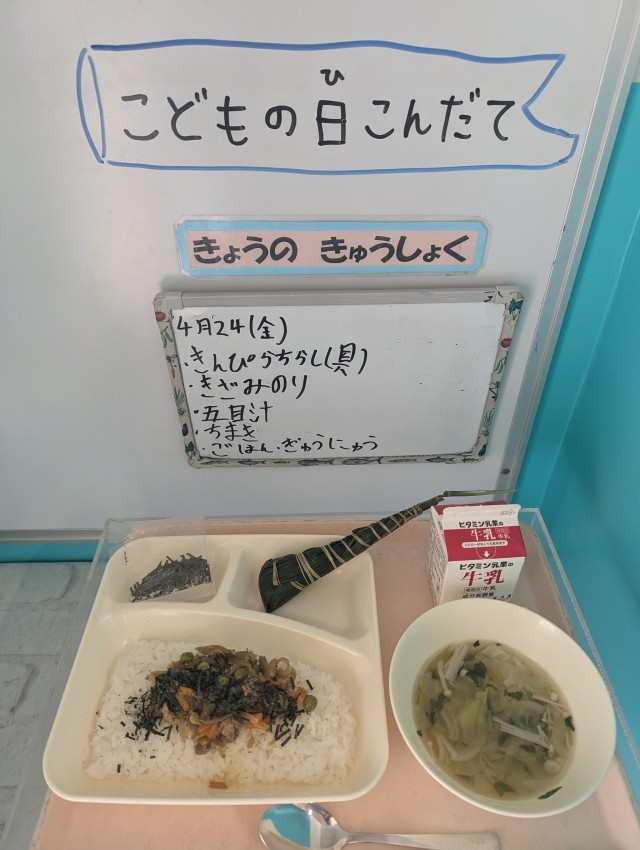 ひ
こどもの日こんだて
きょうの きゅうしょく
4月24(金)
・きんぴらちらし(具)
・きざみのり
・五目汁
・ちまき
・ごはん・ぎゅうにゅう
ビタミン乳業の
牛乳
ビタミン乳業の
牛乳